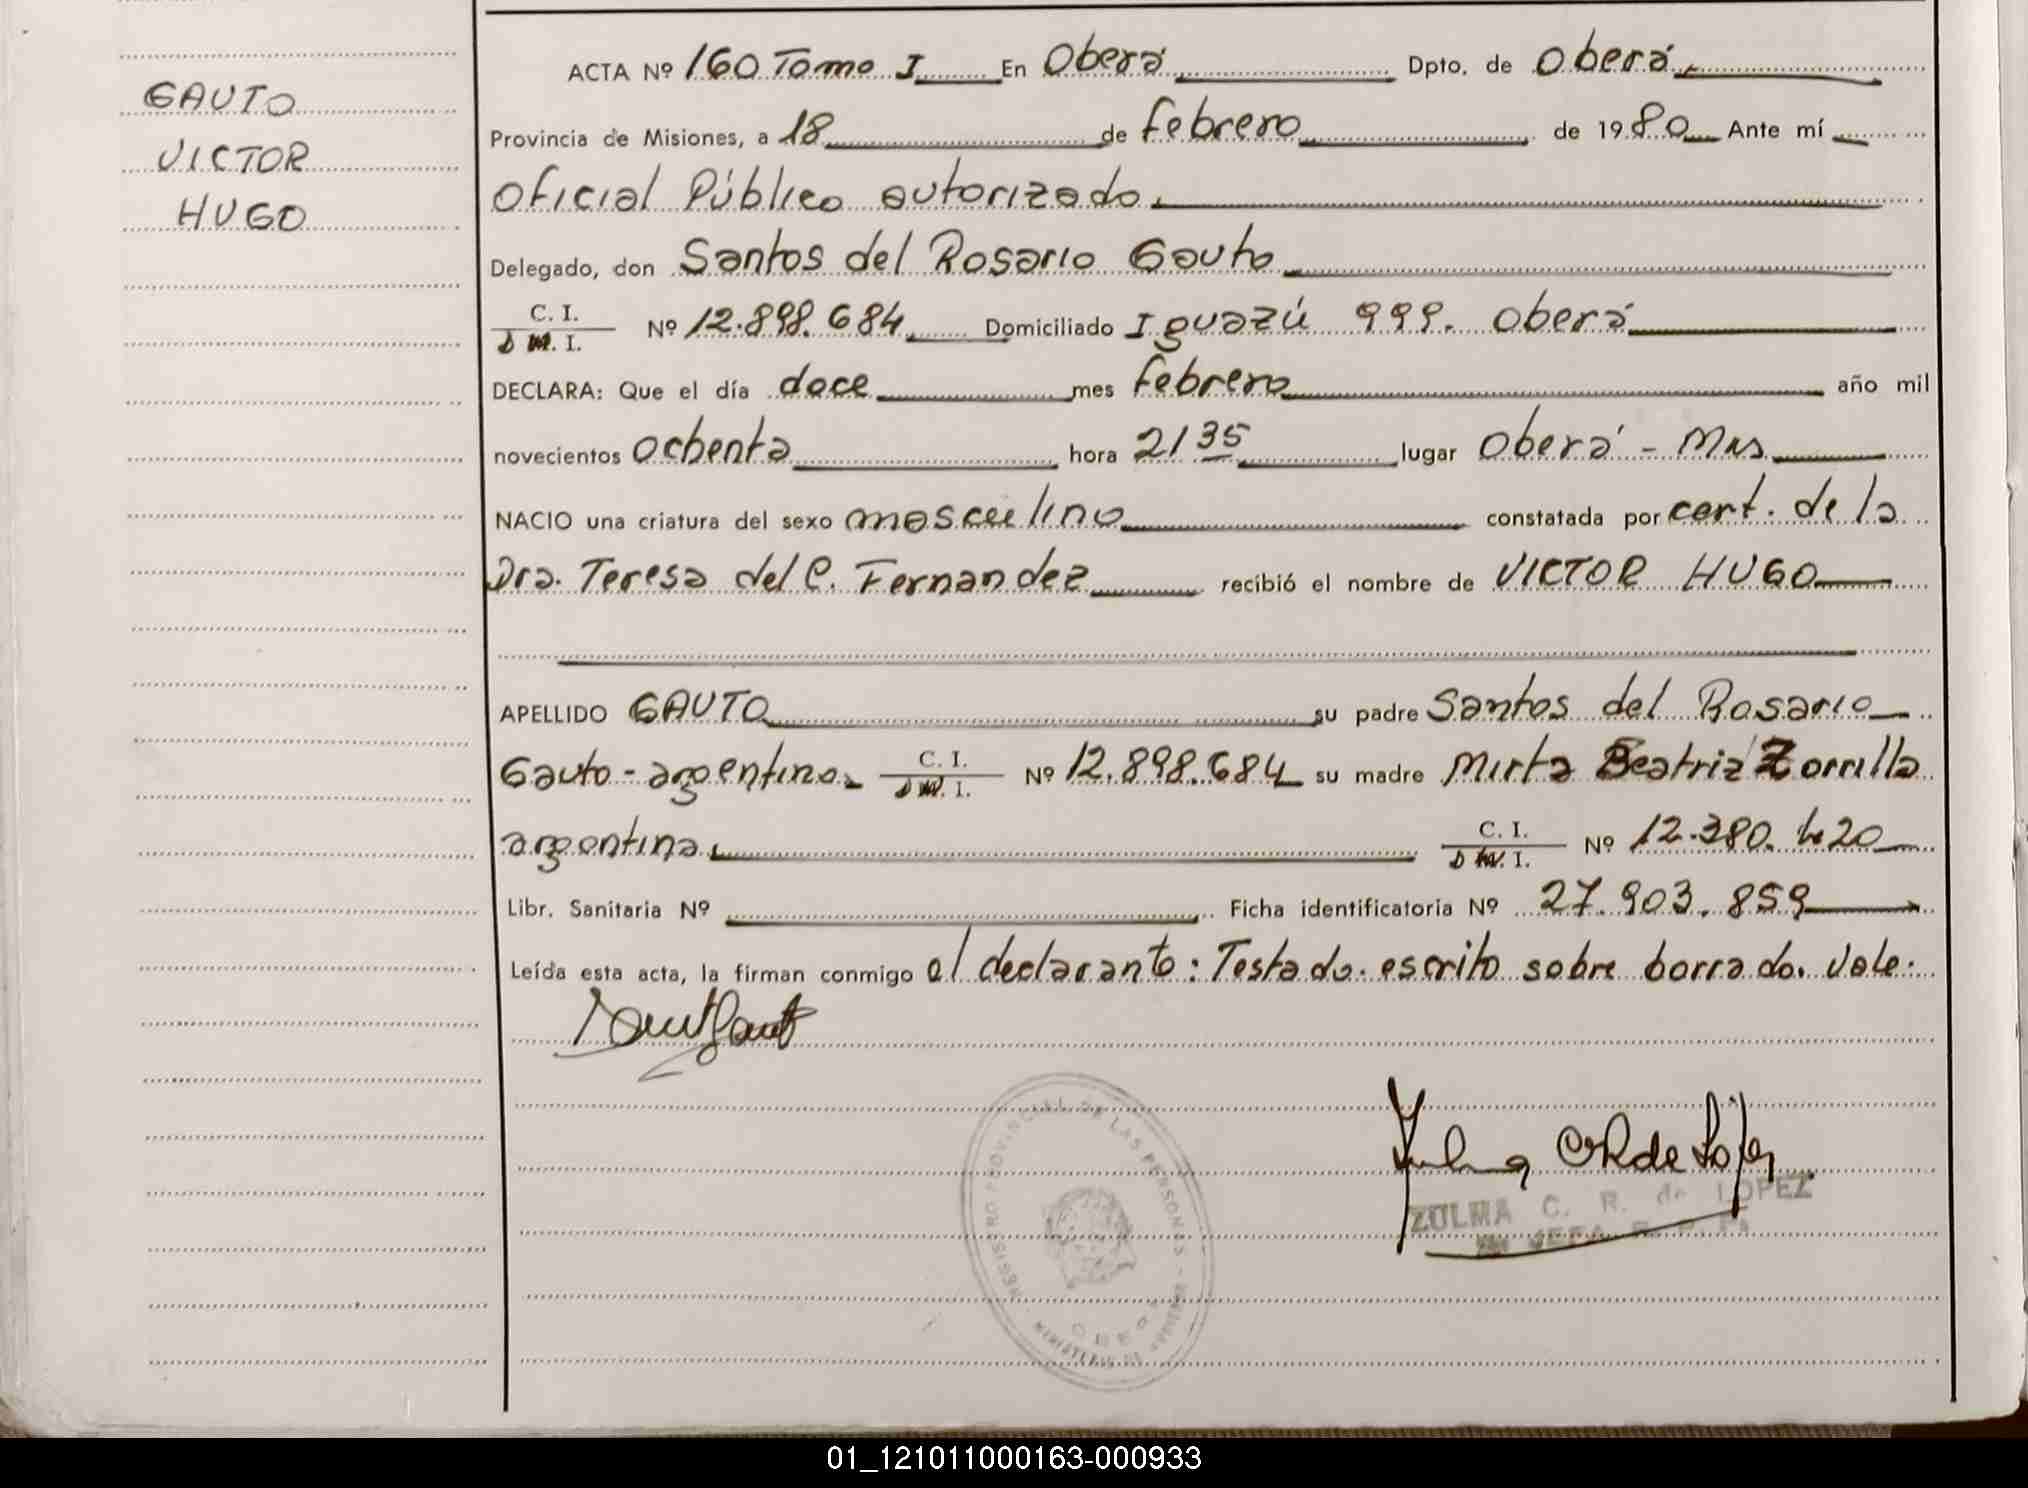 GAUTO
VICTOR
HUGO
ACTA Nº 160 Tomo I En Oberá Dpto. de Oberá,
Provincia de Misiones, a 18 de febrero de 1980 Ante mí
Oficial Público autorizado.
Delegado, don Santos del Rosario Gauto
C. I.
D M. I. Nº 12.898.684 Domiciliado Iguazú 999. Oberá
DECLARA: Que el día doce mes febrero año mil
novecientos ochenta hora 21 35 lugar Oberá - Mns
NACIO una criatura del sexo masculino constatada por cert. de la
Dra. Teresa del C. Fernandez recibió el nombre de VICTOR HUGO
APELLIDO GAUTO su padre Santos del Rosario
Gauto - argentino. C. I.
D M. I. Nº 12.898.684 su madre Mirta Beatriz Zorrilla
argentina. C. I.
D M. I. Nº 12.380.
Libr. Sanitaria Nº Ficha identificatoria Nº 27.903.859
Leída esta acta, la firman conmigo el declarante: Testado. escrito sobre borrado. Vale.
REGISTRO PROVINCIAL DE LAS PERSONAS - MINISTERIO DE GOBIERNO
OBERA
ZULMA C. R. de LOPEZ
JEFA
01_121011000163-000933